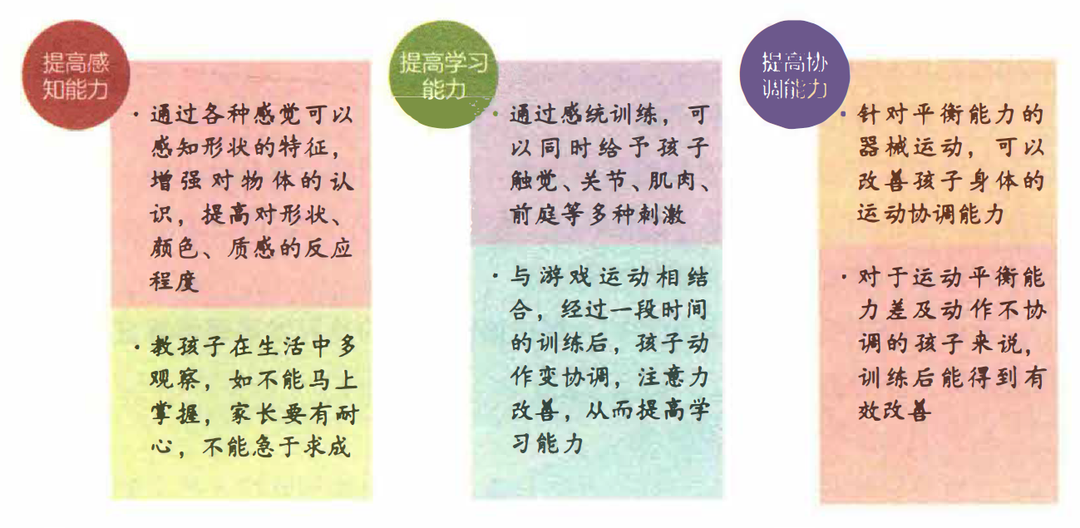 提高感
知能力
· 通过各种感觉可以
感知形状的特征，
增强对物体的认
识，提高对形状、
颜色、质感的反应
程度
· 教孩子在生活中多
观察，如不能马上
掌握，家长要有耐
心，不能急于求成
提高学习
能力
· 通过感统训练，可
以同时给予孩子
触觉、关节、肌肉、
前庭等多种刺激
· 与游戏运动相结
合，经过一段时间
的训练后，孩子动
作变协调，注意力
改善，从而提高学
习能力
提高协
调能力
· 针对平衡能力的
器械运动，可以
改善孩子身体的
运动协调能力
· 对于运动平衡能
力差及动作不协
调的孩子来说，
训练后能得到有
效改善